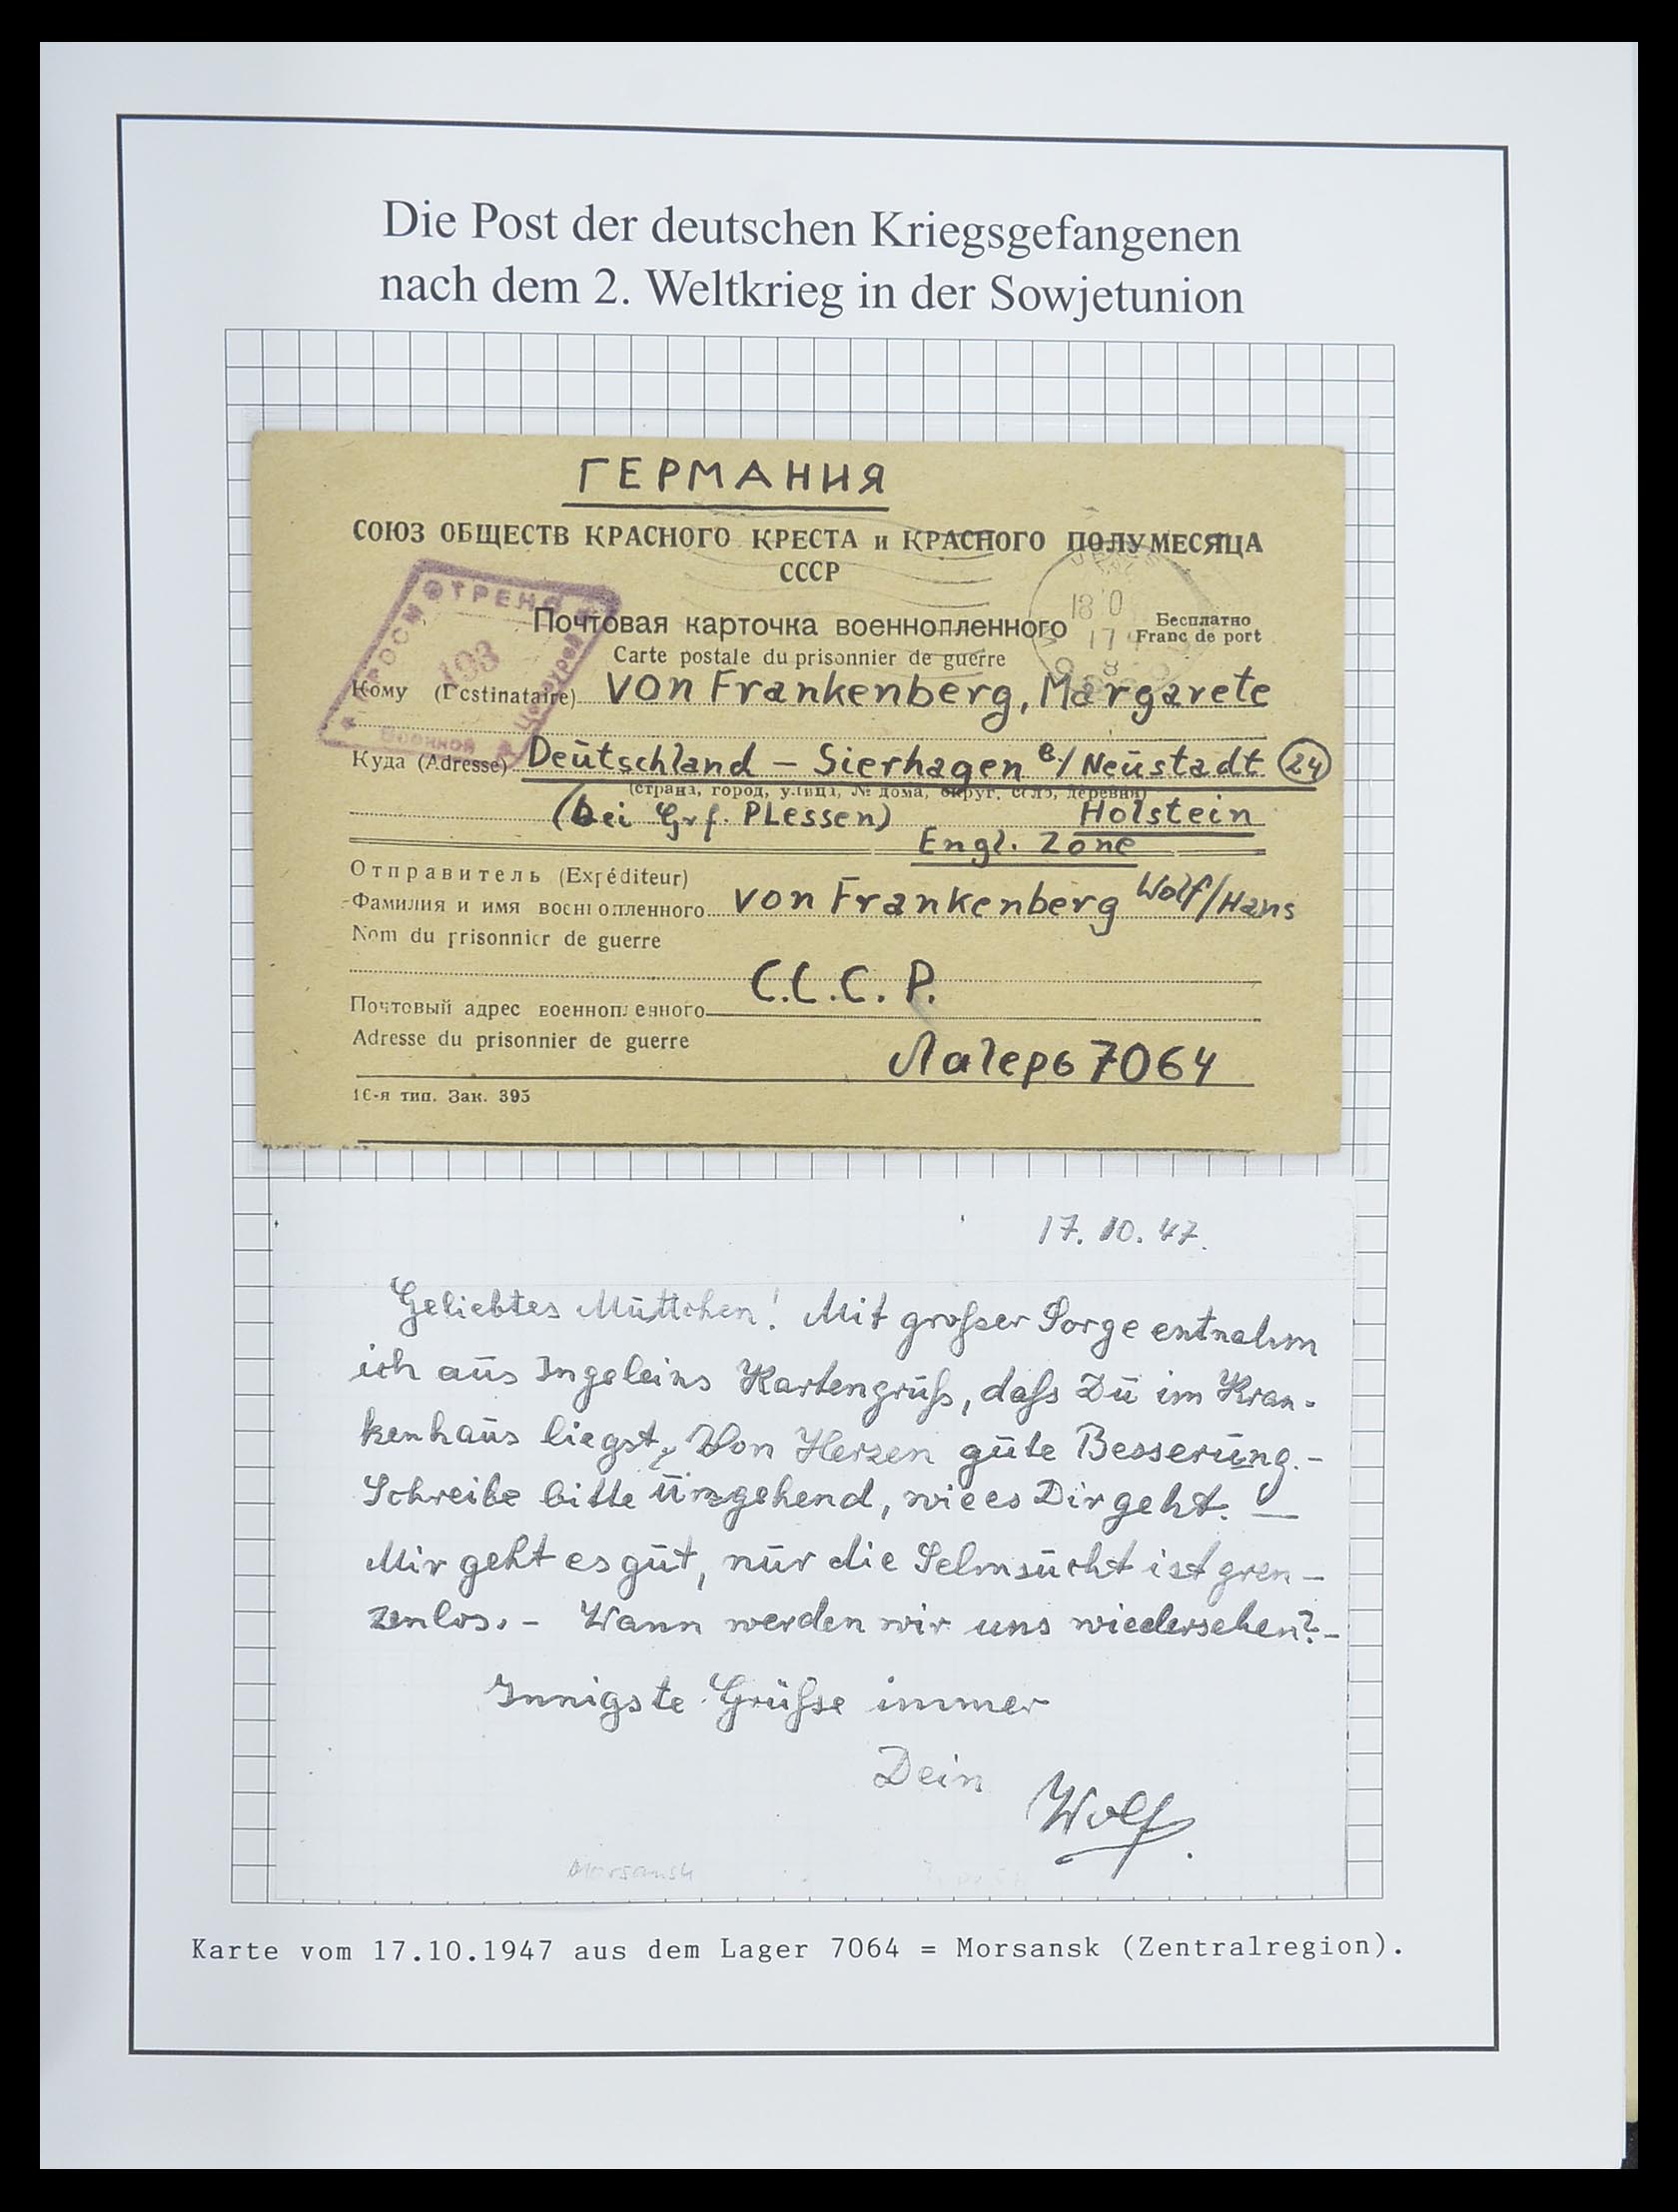 Die Post der deutschen Kriegsgefangenen
nach dem 2. Weltkrieg in der Sowjetunion
ГЕРМАНИЯ
СОЮЗ ОБЩЕСТВ КРАСНОГО КРЕСТА и КРАСНОГО ПОЛУМЕСЯЦА
СССР
ПРОСМОТРЕНО
Военной Цензурой
Почтовая карточка военнопленного
Carte postale du prisonnier de guerre
Бесплатно
Franc de port
Кому (Destinataire) von Frankenberg, Margarete
Куда (Adresse) Deutschland – Sierhagen b/Neustadt 24
(страна, город, улица, № дома, округ, село, деревня)
(bei Grf. Plessen) Holstein
Engl. Zone
Отправитель (Expéditeur)
Фамилия и имя военнопленного von Frankenberg Wolf/Hans
Nom du prisonnier de guerre
С.С.С.Р.
Почтовый адрес военнопленного
Adresse du prisonnier de guerre
Лагерь 7064
16-я тип. Зак. 395
17.10.47.
Geliebtes Muttchen! Mit großer Sorge entnahm
ich aus Ingeleins Kartengruß, daß Du im Kran-
kenhaus liegst. Von Herzen gute Besserung. –
Schreibe bitte umgehend, wie es Dir geht. —
Mir geht es gut, nur die Sehnsucht ist gren-
zenlos. – Wann werden wir uns wiedersehen? –
Innigste Grüße immer
Dein
Wolf.
Morsansk
Karte vom 17.10.1947 aus dem Lager 7064 = Morsansk (Zentralregion).